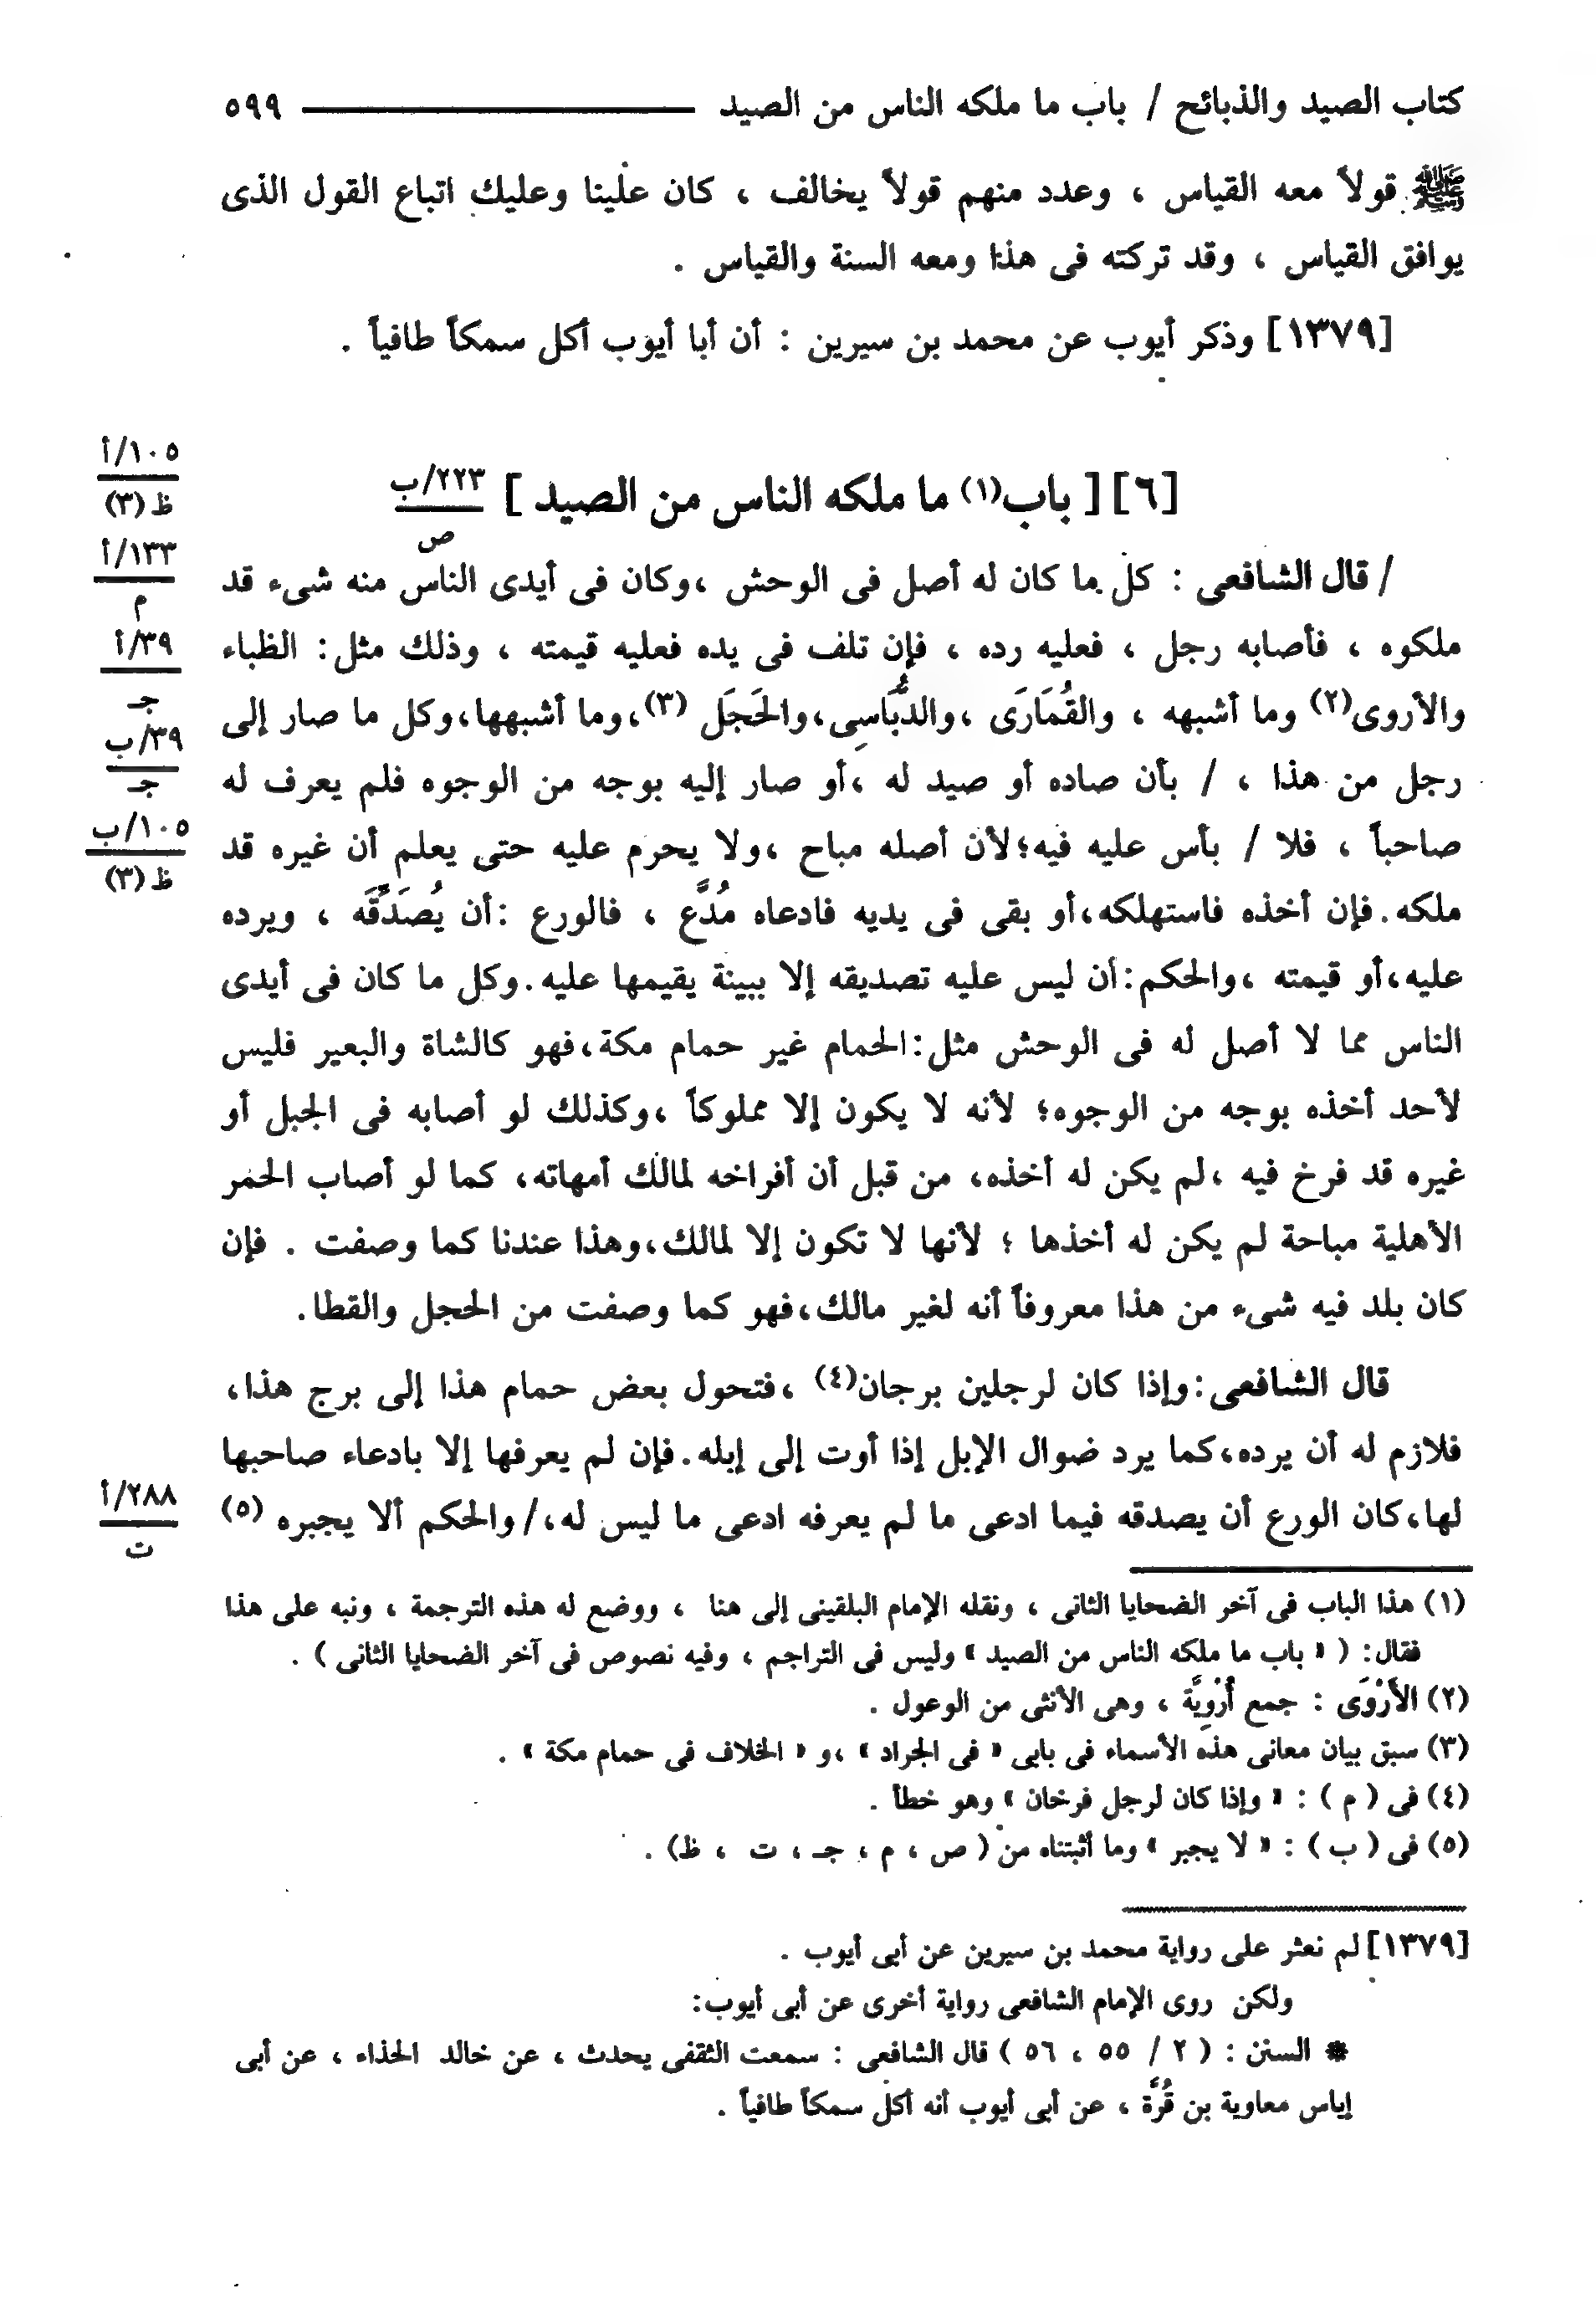 كتاب الصيد والذبائح / باب ما ملكه الناس من الصيد ٥٩٩
ﷺ قولاً معه القياس ، وعدد منهم قولاً يخالف ، كان علينا وعليك اتباع القول الذى
يوافق القياس ، وقد تركته فى هذا ومعه السنة والقياس .
[١٣٧٩] وذكر أيوب عن محمد بن سيرين : أن أبا أيوب أكل سمكاً طافياً .
[٦] [ باب(١) ما ملكه الناس من الصيد ] ٢٢٣/ب
ص
١٠٥/أ
ظ (٣)
/ قال الشافعى : كل ما كان له أصل فى الوحش ،وكان فى أيدى الناس منه شىء قد
١٣٣/أ
م
ملكوه ، فأصابه رجل ، فعليه رده ، فإن تلف فى يده فعليه قيمته ، وذلك مثل: الظباء
٣٩/أ
جـ
والأروى(٢) وما أشبهه ، والقُمَارَى ،والدُّبَّاسِى،والحَجَل (٣)،وما أشبهها،وكل ما صار إلى
٣٩/ب
جـ
رجل من هذا ، / بأن صاده أو صيد له ،أو صار إليه بوجه من الوجوه فلم يعرف له
١٠٥/ب
ظ (٣)
صاحباً ، فلا / بأس عليه فيه؛لأن أصله مباح ،ولا يحرم عليه حتى يعلم أن غيره قد
ملكه.فإن أخذه فاستهلكه،أو بقى فى يديه فادعاه مُدَّع ، فالورع :أن يُصَدِّقَه ، ويرده
عليه،أو قيمته ،والحكم:أن ليس عليه تصديقه إلا ببينة يقيمها عليه.وكل ما كان فى أيدى
الناس مما لا أصل له فى الوحش مثل:الحمام غير حمام مكة،فهو كالشاة والبعير فليس
لأحد أخذه بوجه من الوجوه؛ لأنه لا يكون إلا مملوكاً ،وكذلك لو أصابه فى الجبل أو
غيره قد فرخ فيه ،لم يكن له أخذه، من قبل أن أفراخه لمالك أمهاته، كما لو أصاب الحمر
الأهلية مباحة لم يكن له أخذها ؛ لأنها لا تكون إلا لمالك،وهذا عندنا كما وصفت . فإن
كان بلد فيه شىء من هذا معروفاً أنه لغير مالك،فهو كما وصفت من الحجل والقطا.
قال الشافعى:وإذا كان لرجلين برجان(٤) ،فتحول بعض حمام هذا إلى برج هذا،
فلازم له أن يرده،كما يرد ضوال الإبل إذا أوت إلى إبله.فإن لم يعرفها إلا بادعاء صاحبها
لها،كان الورع أن يصدقه فيما ادعى ما لم يعرفه ادعى ما ليس له،/والحكم ألا يجبره (٥)
٢٨٨/أ
ت
(١) هذا الباب فى آخر الضحايا الثانى ، ونقله الإمام البلقينى إلى هنا ، ووضع له هذه الترجمة ، ونبه على هذا
فقال: ( « باب ما ملكه الناس من الصيد » وليس فى التراجم ، وفيه نصوص فى آخر الضحايا الثانى ) .
(٢) الأَرْوَى : جمع أُرْوِيَّة ، وهى الأنثى من الوعول .
(٣) سبق بيان معانى هذه الأسماء فى بابى « فى الجراد » ،و « الخلاف فى حمام مكة » .
(٤) فى ( م ) : « وإذا كان لرجل فرخان » وهو خطأ .
(٥) فى ( ب ) : « لا يجبر » وما أثبتناه من ( ص ، م ، جـ ، ت ، ظ) .
[١٣٧٩] لم نعثر على رواية محمد بن سيرين عن أبى أيوب .
ولكن روى الإمام الشافعى رواية أخرى عن أبى أيوب:
* السنن : ( ٢ / ٥٥ ، ٥٦ ) قال الشافعى : سمعت الثقفى يحدث ، عن خالد الحذاء ، عن أبى
إياس معاوية بن قُرَّة ، عن أبى أيوب أنه أكل سمكاً طافياً .